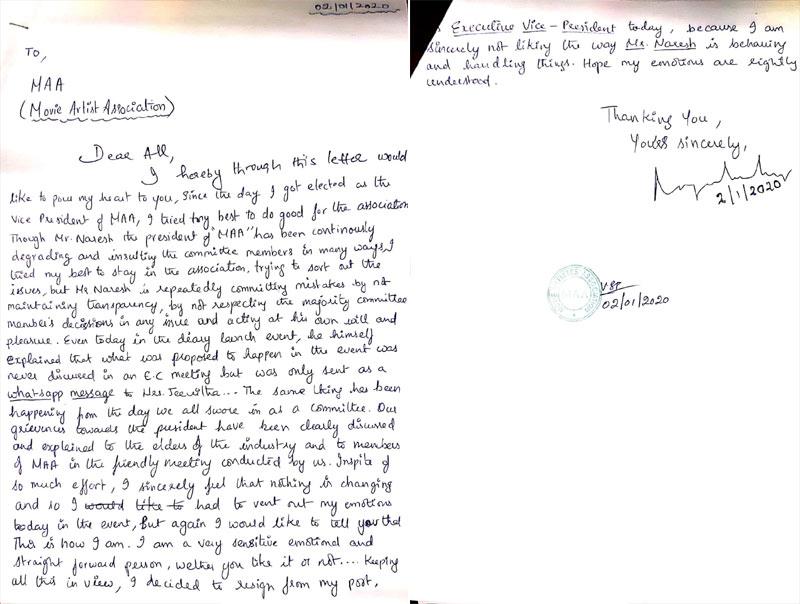 02/01/2020
To,
MAA
(Movie Artist Association)
Dear All,
I hereby through this letter would
like to pour my heart to you, Since the day I got elected as the
Vice President of MAA, I tried my best to do good for the association
Though Mr. Naresh the president of "MAA" has been continously
degrading and insulting the committee members in many ways, I
tried my best to stay in the association, trying to sort out the
issues, but Mr Naresh is repeatedly committing mistakes by not
maintaining transparency, by not respecting the majority committee
member's decisions in any issue and acting at his own will and
pleasure. Even today in the diary launch event, he himself
explained that what was proposed to happen in the event was
never discussed in an E.C meeting but was only sent as a
whatsapp message to Mrs. Jeevitha... The same thing has been
happening from the day we all swore in as a committee. Our
grievences towards the president have been clearly discussed
and explained to the elders of the industry and to members
of MAA in the friendly meeting conducted by us. Inspite of
so much effort, I sincerely feel that nothing is changing
and so I would like to had to vent out my emotions
today in the event, But again I would like to tell you that
This is how I am. I am a very sensitive emotional and
straight forward person, wether you like it or not.... Keeping
all this in view, I decided to resign from my post,
Executive Vice - President today, because I am
sincerely not liking the way Mr. Naresh is behaving
and handling things. Hope my emotions are rightly
understood.
Thanking You,
Yours sincerely,
2/1/2020
MAA
02/01/2020